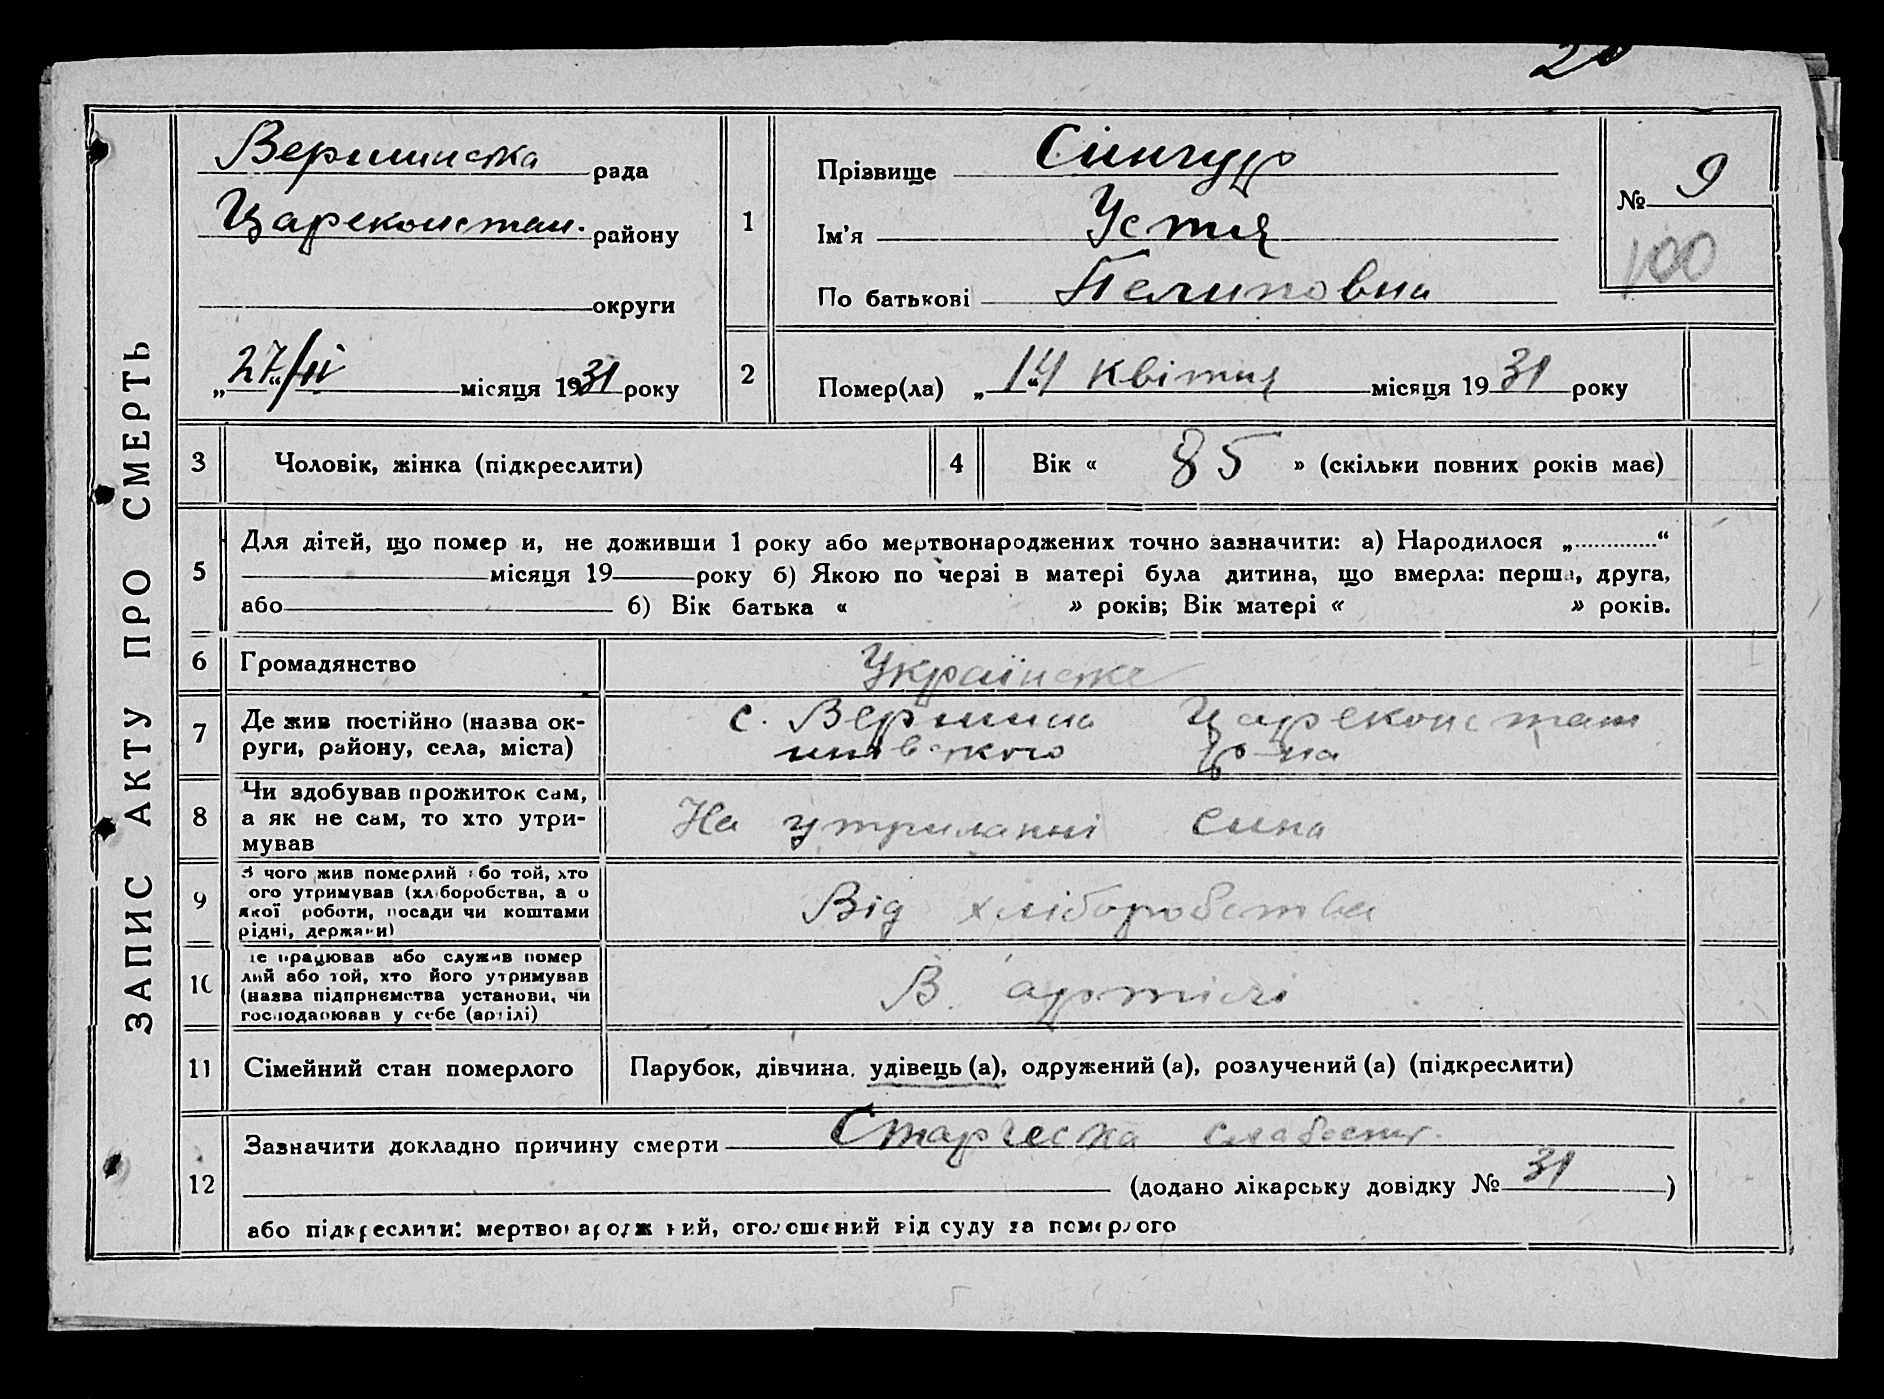 ЗАПИС АКТУ ПРО СМЕРТЬ
Вершинська рада
Цареконстан. району
округи
„27“/IV місяця 1931 року
1
Прізвище Сингур
Ім'я Устя
По батькові Пелиповна
№ 9
100
2
Помер(ла) „14“ квітня місяця 1931 року
3 Чоловік, жінка (підкреслити)
4 Вік « 85 » (скільки повних років має)
5
Для дітей, що помер и, не доживши 1 року або мертвонароджених точно зазначити: а) Народилося „............“
місяця 19 року б) Якою по черзі в матері була дитина, що вмерла: перша, друга,
або б) Вік батька « » років; Вік матері « » років.
6 Громадянство Українське
7
Де жив постійно (назва ок-
руги, району, села, міста)
с. Вершина Цареконстан
тинівського р-на
8
Чи здобував прожиток сам,
а як не сам, то хто утри-
мував
На утриманні сина
9
З чого жив померлий або той, хто
ого утримував (хліборобства, а о
якої роботи, посади чи коштами
рідні, держави)
Від хліборобства
10
де працював або служив помер
лий або той, хто його утримував
(назва підприємства установи, чи
господарював у себе (артілі)
В артілі
11 Сімейний стан померлого
Парубок, дівчина, удівець (а), одружений (а), розлучений (а) (підкреслити)
12
Зазначити докладно причину смерти Старческа слабость.
(додано лікарську довідку № 31)
або підкреслити: мертвонароджений, оголошений від суду за померлого